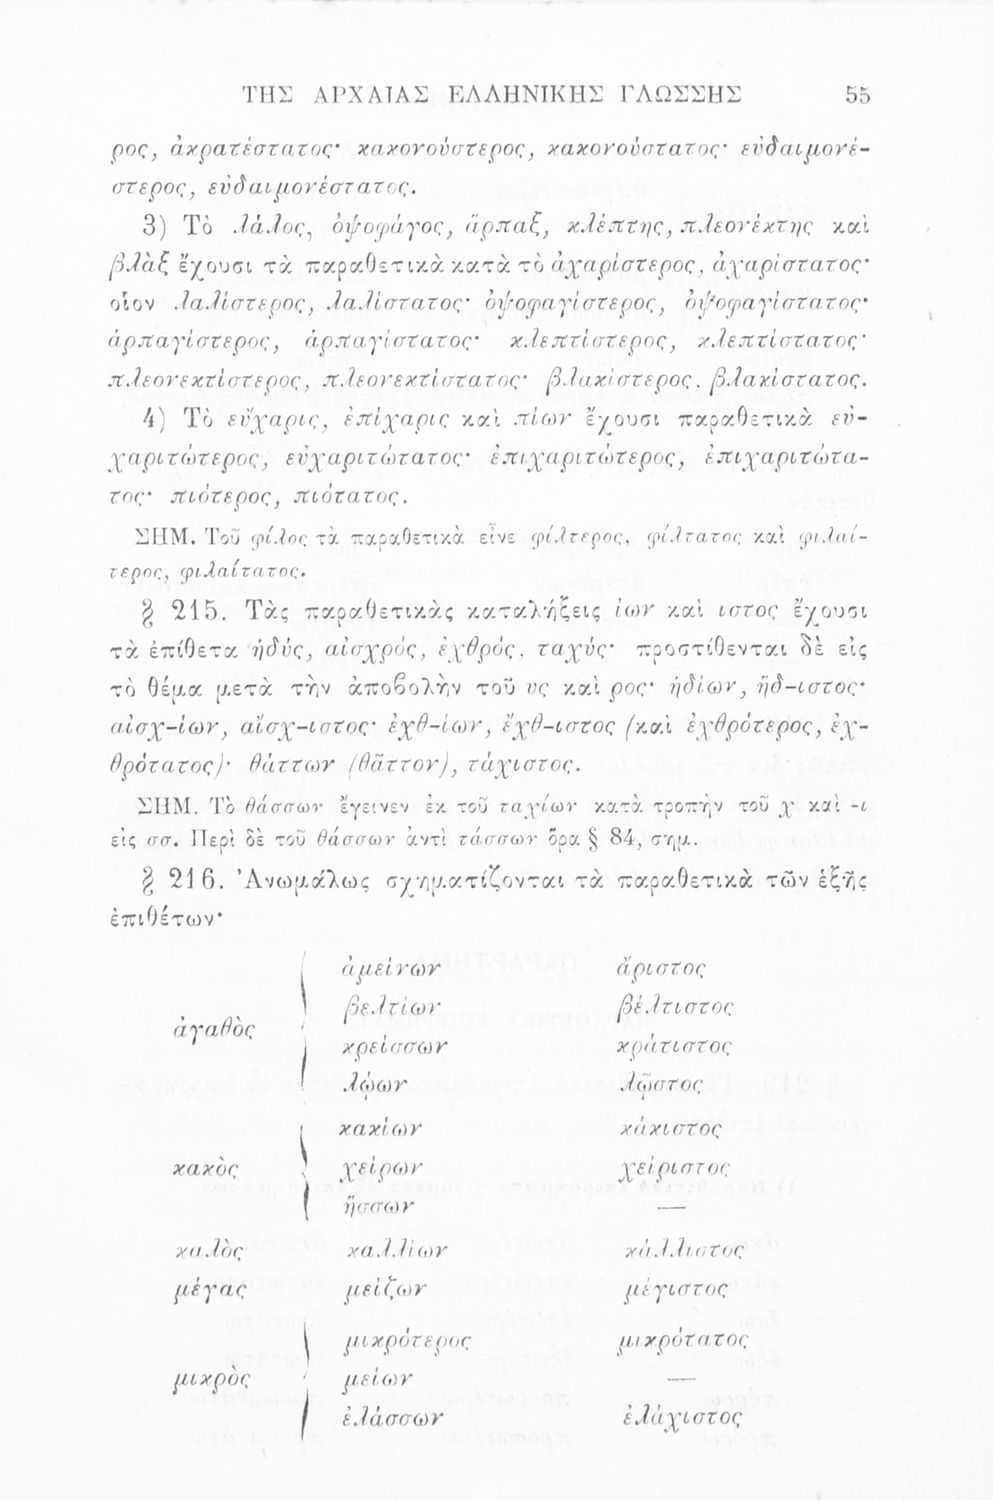 ΤΗΣ ΑΡΧΑΙΑΣ ΕΛΛΗΝΙΚΗΣ ΓΛΩΣΣΗΣ 55
ρος, ἀκρατέστατος· κακονούστερος, κακονούστατος· εὐδαιμονέ-
στερος, εὐδαιμονέστατος.
3) Τὸ λάλος, ὀψοφάγος, ἅρπαξ, κλέπτης, πλεονέκτης καὶ
βλὰξ ἔχουσι τὰ παραθετικὰ κατὰ τὸ ἀχαρίστερος, ἀχαρίστατος·
οἷον λαλίστερος, λαλίστατος· ὀψοφαγίστερος, ὀψοφαγίστατος·
ἁρπαγίστερος, ἁρπαγίστατος· κλεπτίστερος, κλεπτίστατος·
πλεονεκτίστερος, πλεονεκτίστατος· βλακίστερος, βλακίστατος.
4) Τὸ εὔχαρις, ἐπίχαρις καὶ πίων ἔχουσι παραθετικὰ εὐ-
χαριτώτερος, εὐχαριτώτατος· ἐπιχαριτώτερος, ἐπιχαριτώτα-
τος· πιότερος, πιότατος.
ΣΗΜ. Τοῦ φίλος τὰ παραθετικὰ εἶνε φίλτερος, φίλτατος καὶ φιλαί-
τερος, φιλαίτατος.
§ 215. Τὰς παραθετικὰς καταλήξεις ίων καὶ ιστος ἔχουσι
τὰ ἐπίθετα ἡδύς, αἰσχρός, ἐχθρός, ταχύς· προστίθενται δὲ εἰς
τὸ θέμα μετὰ τὴν ἀποβολὴν τοῦ υς καὶ ρος· ἡδίων, ἥδ-ιστος·
αἰσχ-ίων, αἴσχ-ιστος· ἐχθ-ίων, ἔχθ-ιστος (καὶ ἐχθρότερος, ἐχ-
θρότατος)· θάττων (θᾶττον), τάχιστος.
ΣΗΜ. Τὸ θάσσων ἔγεινεν ἐκ τοῦ ταχίων κατὰ τροπὴν τοῦ χ καὶ -ι
εἰς σσ. Περὶ δὲ τοῦ θάσσων ἀντὶ τάσσων ὅρα § 84, σημ.
§ 216. Ἀνωμάλως σχηματίζονται τὰ παραθετικὰ τῶν ἑξῆς
ἐπιθέτων·
ἀμείνων ἄριστος
βελτίων βέλτιστος
ἀγαθὸς
κρείσσων κράτιστος
λῴων λῷστος
κακίων κάκιστος
κακὸς χείρων χείριστος
ἥσσων —
καλὸς καλλίων κάλλιστος
μέγας μείζων μέγιστος
μικρότερος μικρότατος
μικρὸς μείων —
ἐλάσσων ἐλάχιστος